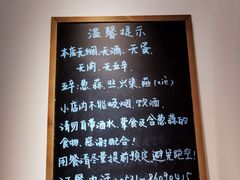 温馨提示
本店无烟、无酒、无蛋、
无肉、无五辛.
五辛: 葱、蒜、韭、兴渠、薤(xiè)
小店内不能吸烟、饮酒.
请勿自带酒水、荤食及含葱蒜的
食物, 感谢配合!
用餐请尽量提前预定避免跑空!
订餐电话: 0531-86090415